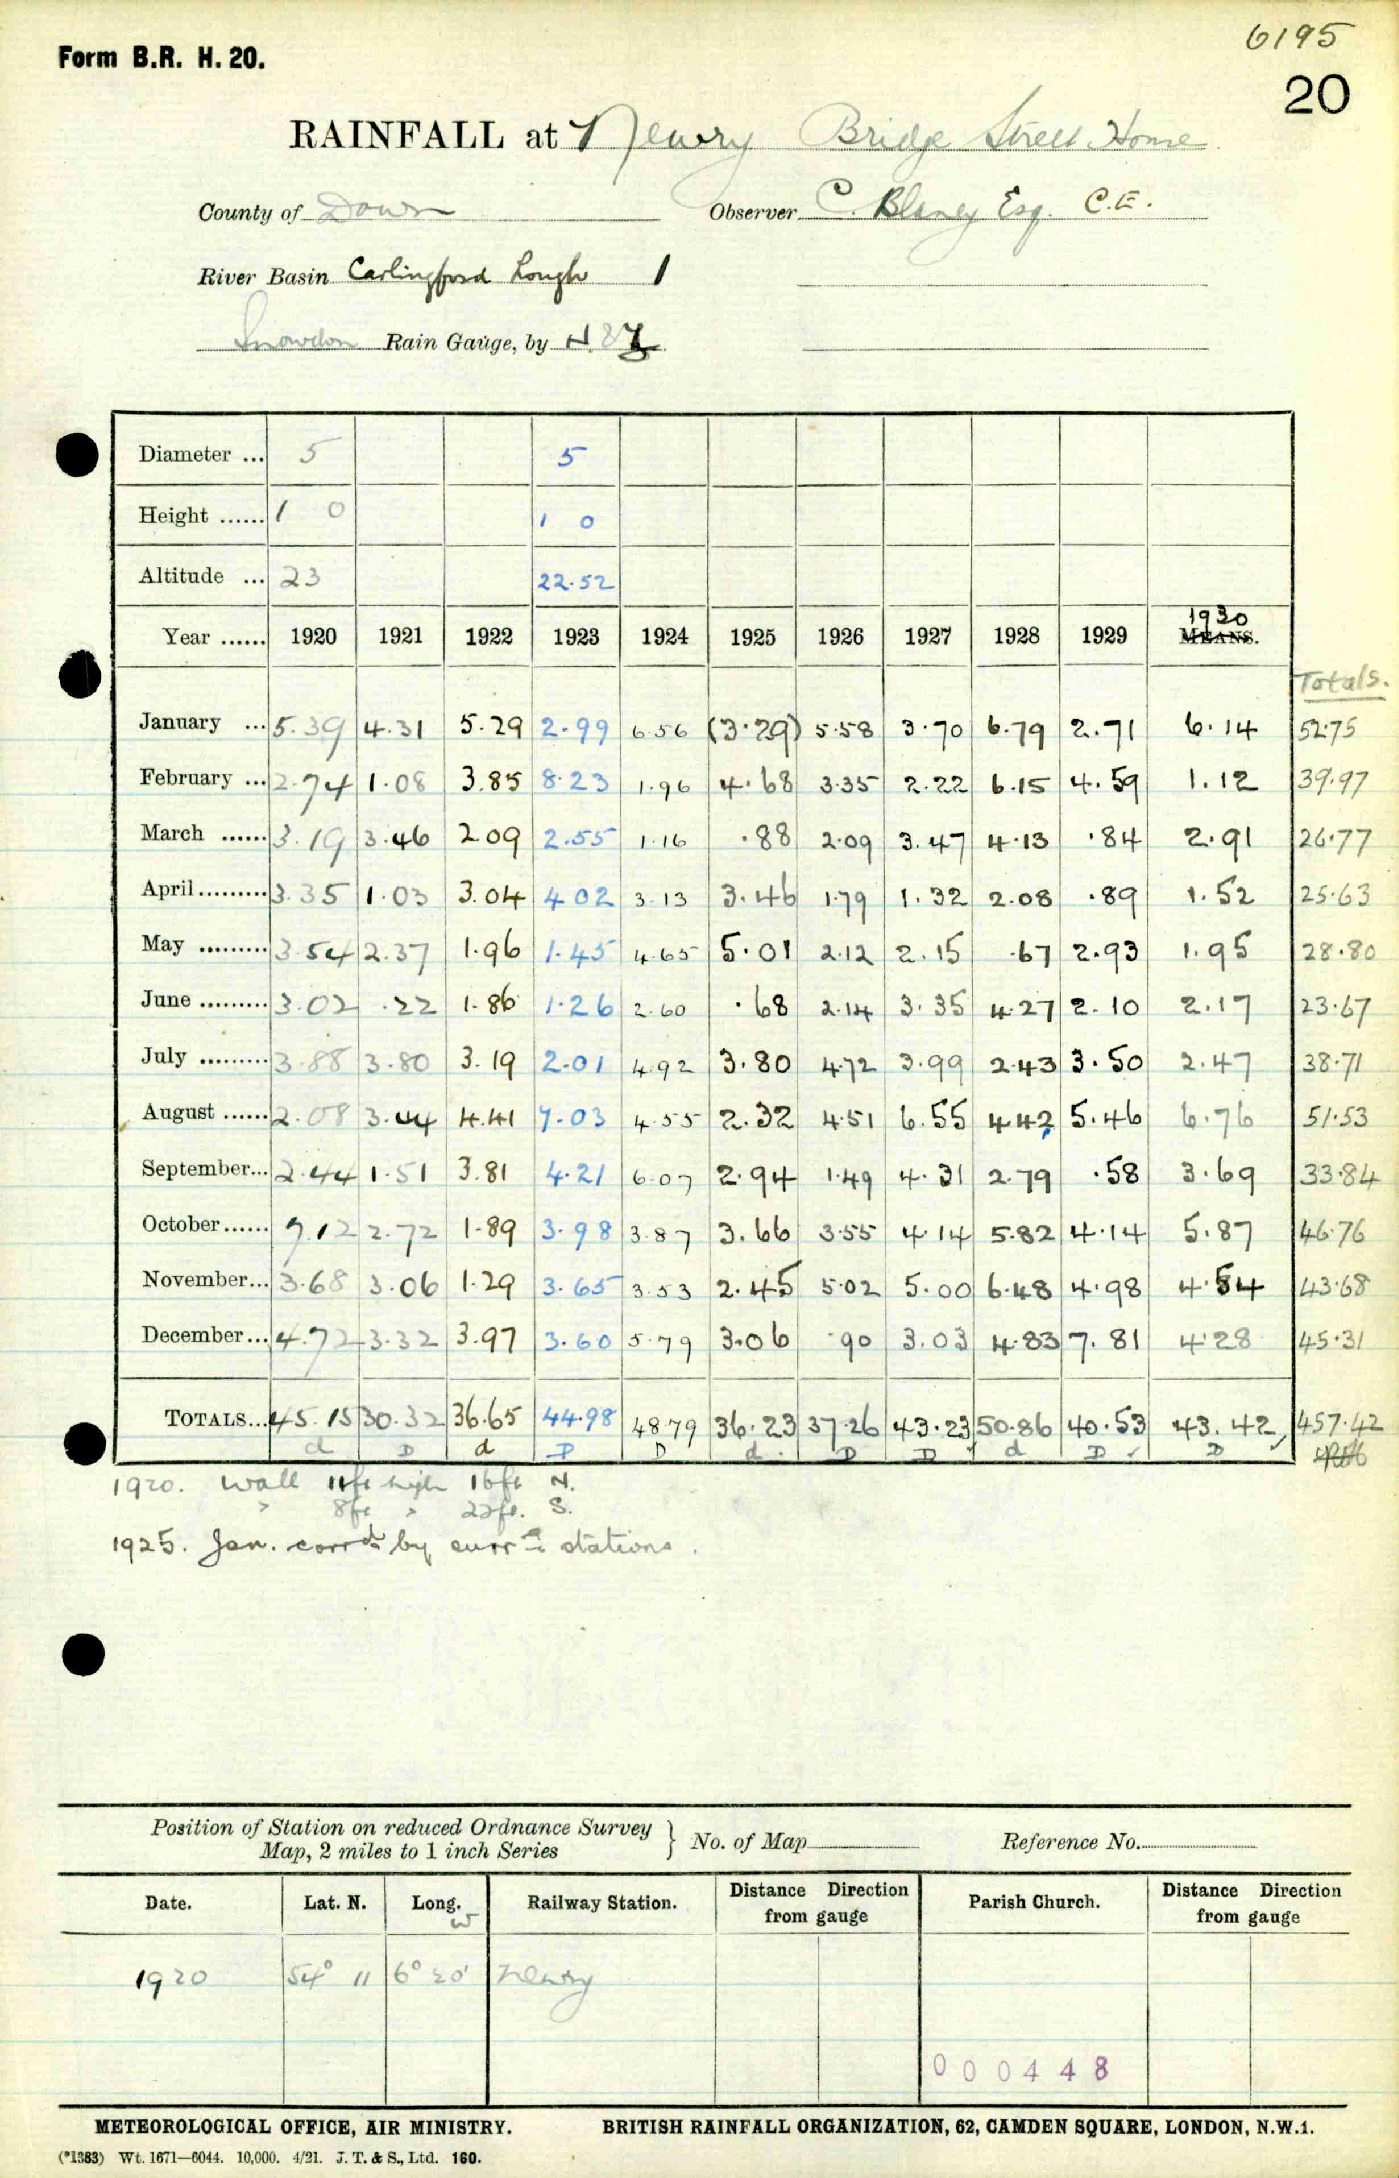 6195
Form B.R. H. 20.
20
RAINFALL at Newry Bridge Street House
County of Down Observer C. Blaney Esq. C.E.
River Basin Carlingford Lough 1
Snowdon Rain Gauge, by N. & Z
Diameter ... 5 5
Height ...... 1 0 1 0
Altitude ... 23 22.52
Year ...... 1920 1921 1922 1923 1924 1925 1926 1927 1928 1929 1930 MEANS.
Totals.
January ... 5.39 4.31 5.29 2.99 6.56 (3.29) 5.58 3.70 6.79 2.71 6.14 52.75
February ... 2.74 1.08 3.85 8.23 1.96 4.68 3.35 2.22 6.15 4.59 1.12 39.97
March ...... 3.19 3.46 2.09 2.55 1.16 .88 2.09 3.47 4.13 .84 2.91 26.77
April ......... 3.35 1.03 3.04 4.02 3.13 3.46 1.79 1.32 2.08 .89 1.52 25.63
May ......... 3.54 2.37 1.96 1.45 4.65 5.01 2.12 2.15 .67 2.93 1.95 28.80
June ......... 3.02 .22 1.86 1.26 2.60 .68 2.14 3.35 4.27 2.10 2.17 23.67
July ......... 3.88 3.80 3.19 2.01 4.92 3.80 4.72 3.99 2.43 3.50 2.47 38.71
August ...... 2.08 3.44 4.41 7.03 4.55 2.32 4.51 6.55 4.42 5.46 6.76 51.53
September... 2.44 1.51 3.81 4.21 6.07 2.94 1.49 4.31 2.79 .58 3.69 33.84
October...... 7.12 2.72 1.89 3.98 3.87 3.66 3.55 4.14 5.82 4.14 5.87 46.76
November... 3.68 3.06 1.29 3.65 3.53 2.45 5.02 5.00 6.48 4.98 4.54 43.68
December... 4.72 3.32 3.97 3.60 5.79 3.06 .90 3.03 4.83 7.81 4.28 45.31
TOTALS... 45.15 30.32 36.65 44.98 48.79 36.23 37.26 43.23 50.86 40.53 43.42 457.42
d D d D D d D D d D D
1920. Wall 11ft high 16ft N.
" 8ft " 22ft. S.
1925. Jan. corrd by surrg stations.
Position of Station on reduced Ordnance Survey
Map, 2 miles to 1 inch Series } No. of Map Reference No.
Date. Lat. N. Long. W Railway Station. Distance Direction from gauge Parish Church. Distance Direction from gauge
1920 54° 11 6° 20' Newry
000448
METEOROLOGICAL OFFICE, AIR MINISTRY. BRITISH RAINFALL ORGANIZATION, 62, CAMDEN SQUARE, LONDON, N.W.1.
(*1383) Wt. 1671—6044. 10,000. 4/21. J. T. & S., Ltd. 160.